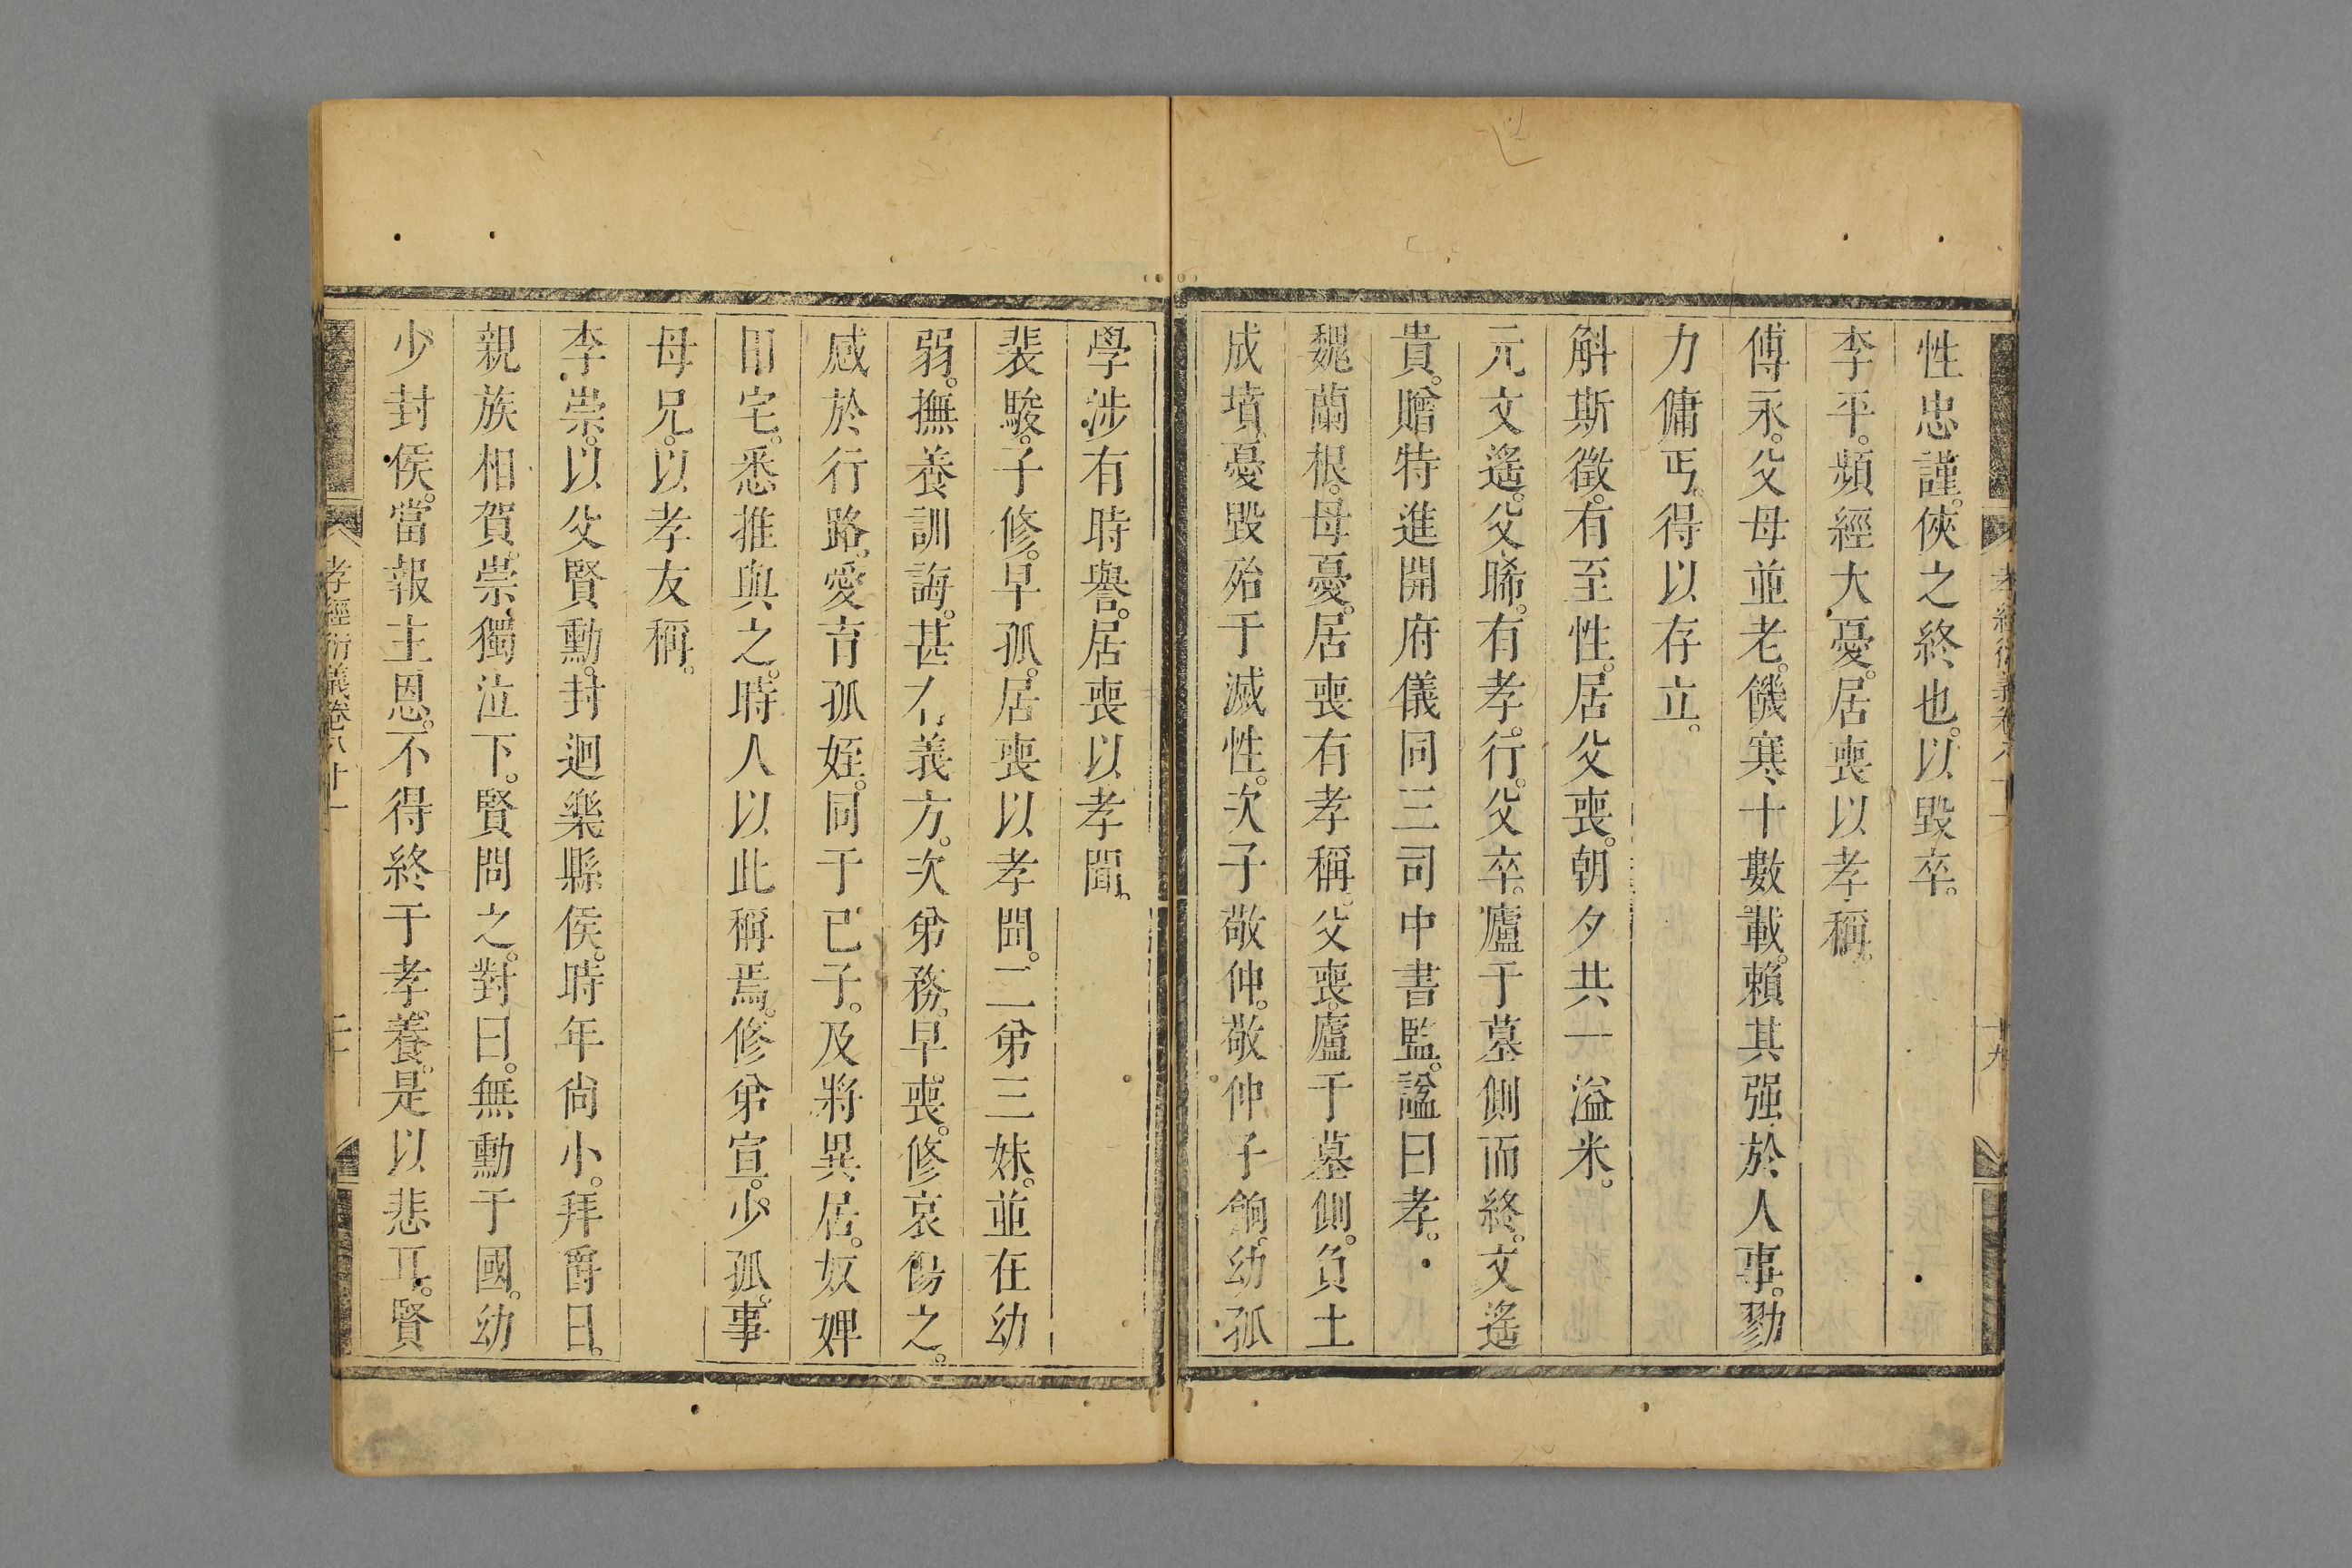 性忠謹。俠之終也。以毀卒。
李平。頻經大憂。居喪以孝稱。
傅永。父母並老。饑寒十數載。賴其强於人事。勠
力傭丐。得以存立。
斛斯徵。有至性。居父喪。朝夕共一溢米。
元文遙。父晞。有孝行。父卒。廬于墓側而終。文遙
貴。贈特進開府儀同三司中書監。諡曰孝。
魏蘭根。母憂。居喪有孝稱。父喪。廬于墓側。負土
成墳。憂毀殆于滅性。次子敬仲。敬仲子餉。幼孤
學涉有時譽。居喪以孝聞。
裴駿。子修。早孤。居喪以孝聞。二弟三妹。並在幼
弱。撫養訓誨。甚有義方。次弟務。早喪。修哀傷之。
感於行路。愛育孤姪。同于已子。及將異居。奴婢
田宅。悉推與之。時人以此稱焉。修弟宣。少孤。事
母兄。以孝友稱。
李崇。以父賢勳。封迴樂縣侯。時年尙小。拜爵日。
親族相賀。崇獨泣下。賢問之。對曰。無勳于國。幼
少封侯。當報主恩。不得終于孝養。是以悲耳。賢
孝經衍義卷八十一